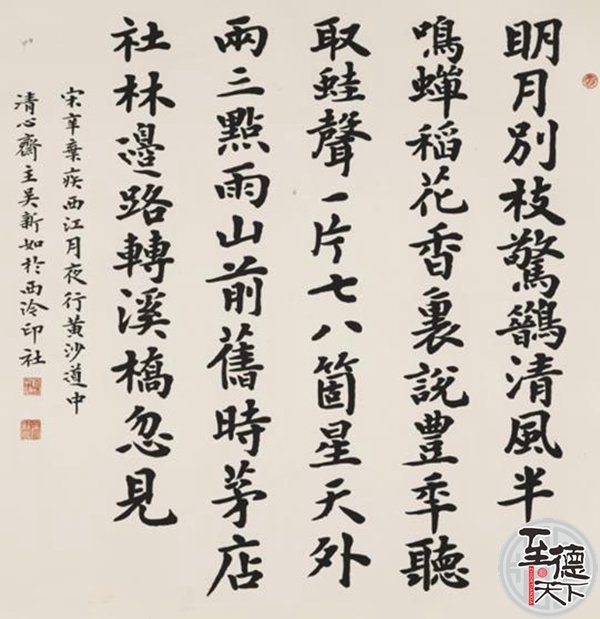 明月別枝驚鵲清風半
鳴蟬稻花香裏說豐年聽
取蛙聲一片七八箇星天外
兩三點雨山前舊時茅店
社林邊路轉溪橋忽見
宋辛棄疾西江月夜行黃沙道中
清心齋主吳新如於西泠印社
至德天下